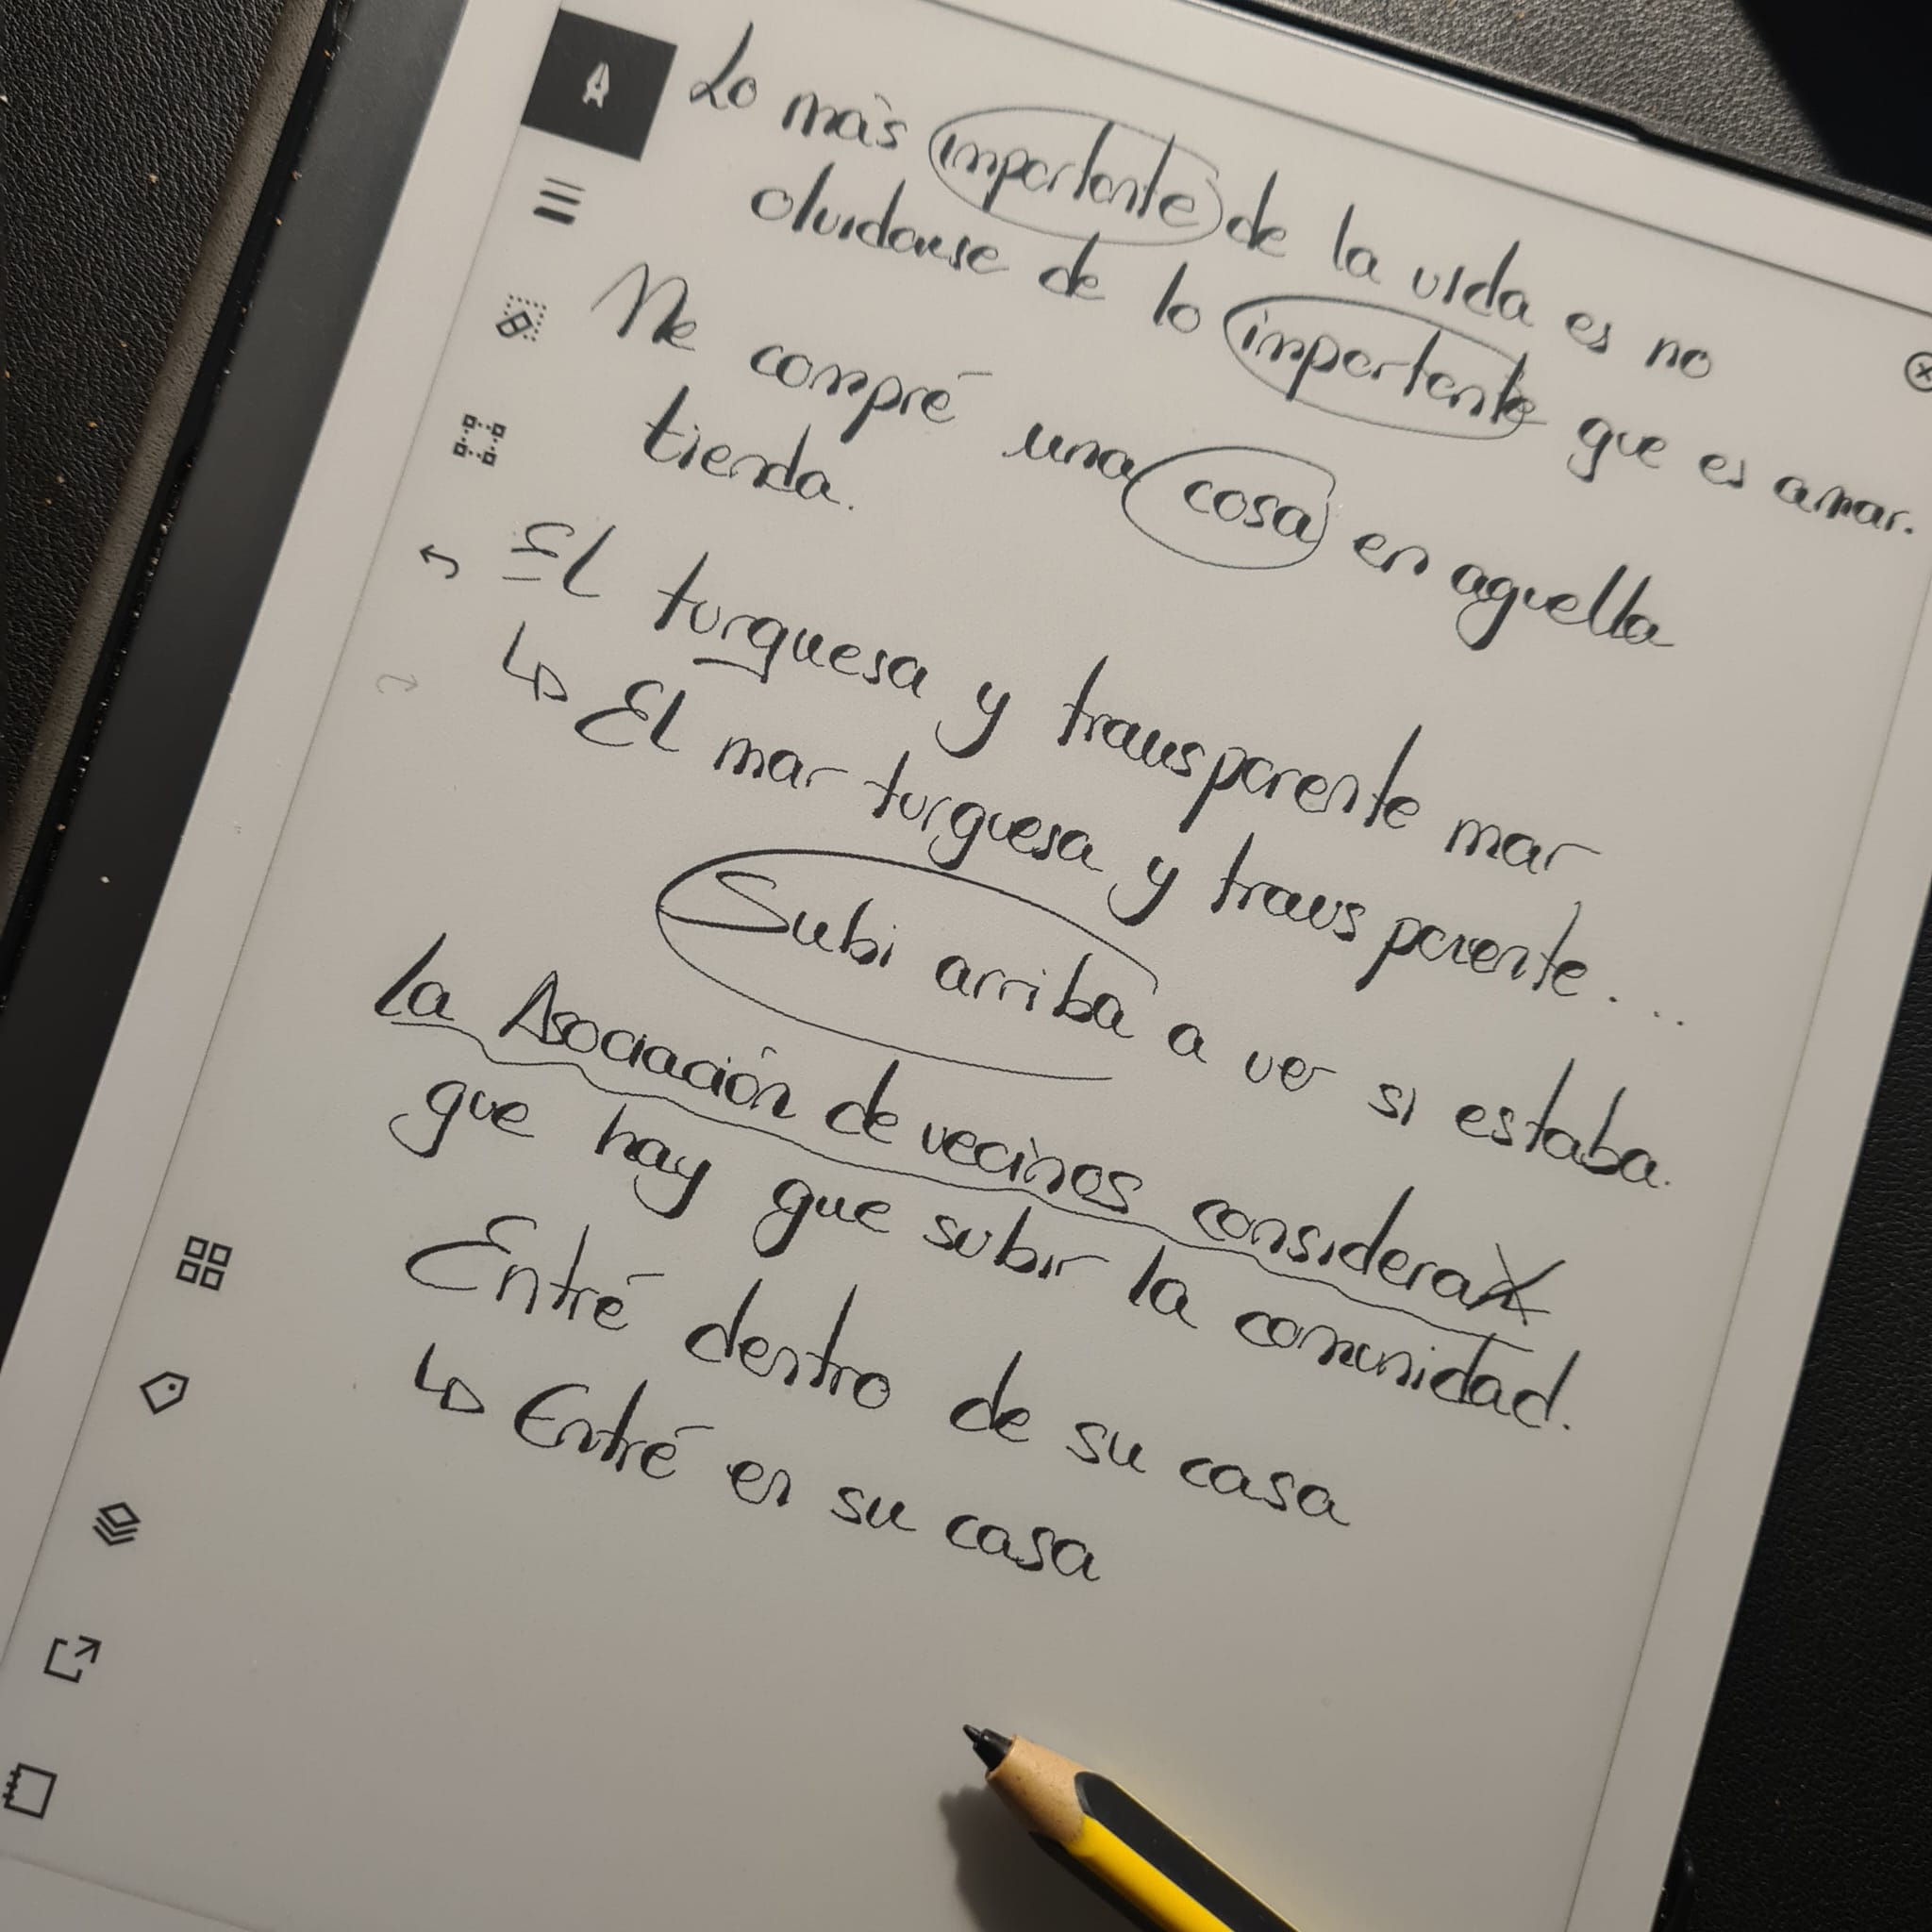 Lo más importante de la vida es no
olvidarse de lo importante que es amar.
Me compré una cosa en aquella
tienda.
El turquesa y transparente mar
↳ El mar turquesa y transparente...
Subi arriba a ver si estaba.
La Asociación de vecinos consideran
que hay que subir la comunidad.
Entré dentro de su casa
↳ Entré en su casa